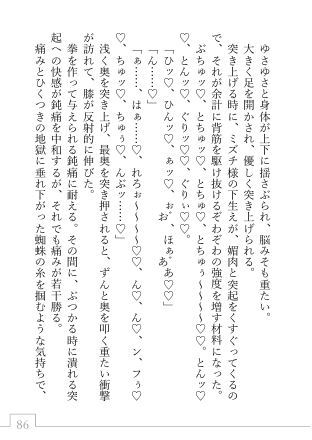 ゆさゆさと身体が上下に揺さぶられ、脳みそも重たい。
大きく足を開かされ、優しく突き上げられる。
突き上げる時に、ミズチ様の下生えが、媚肉と突起をくすぐってくるの
で、それが余計に背筋を駆け抜けるぞわぞわの強度を増す材料になった。
ぷちゅッ♡、とちゅッ♡、とちゅ♡、とちゅぅ～～～♡♡。とんッ♡
♡、とんッ♡、ぐりッ♡♡、ぐりぃ♡♡。
「ひッ♡、ひんッ♡、ぁッ♡、ぉお゛、ほぁ゛あ゛♡♡」
「ん……♡」
「ぁ……、はぁ……♡、れろぉ～～～♡♡、ん♡、ん♡、ン、フぅ♡
♡、ちゅッ♡、ちゅぅ♡、んぶッ……♡」
浅く奥を突き上げ、最奥を突き押されると、ずんと奥を叩く重たい衝撃
が訪れて、膝が反射的に伸びた。
拳を作って与えられる鈍痛に耐える。その間に、ぶつかる時に潰れる突
起への快感が鈍痛を中和するが、それでも痛みが若干勝る。
痛みとひくつきの地獄に垂れ下がった蜘蛛の糸を掴むような気持ちで、
86